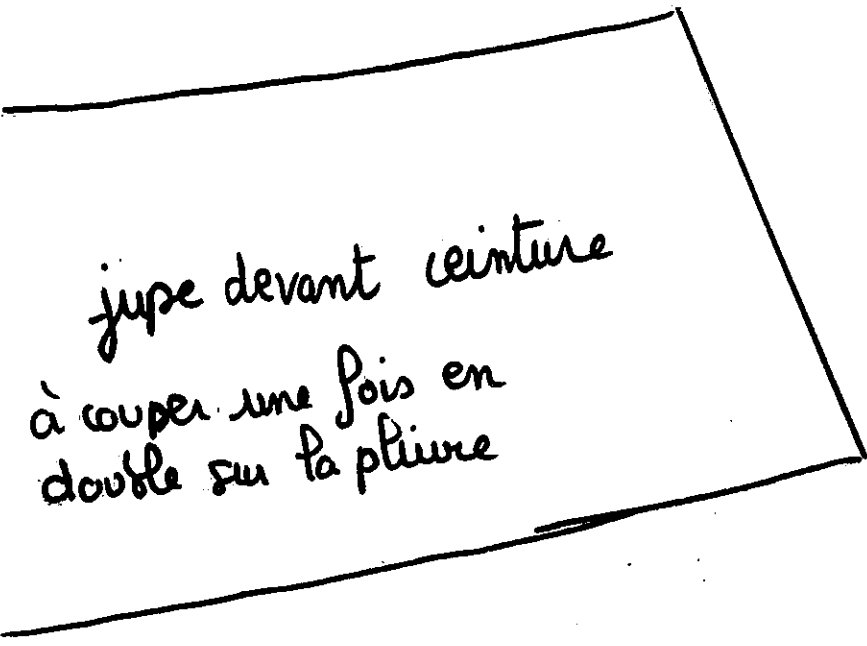 jupe devant ceinture
à couper une fois en
double sur la pliure